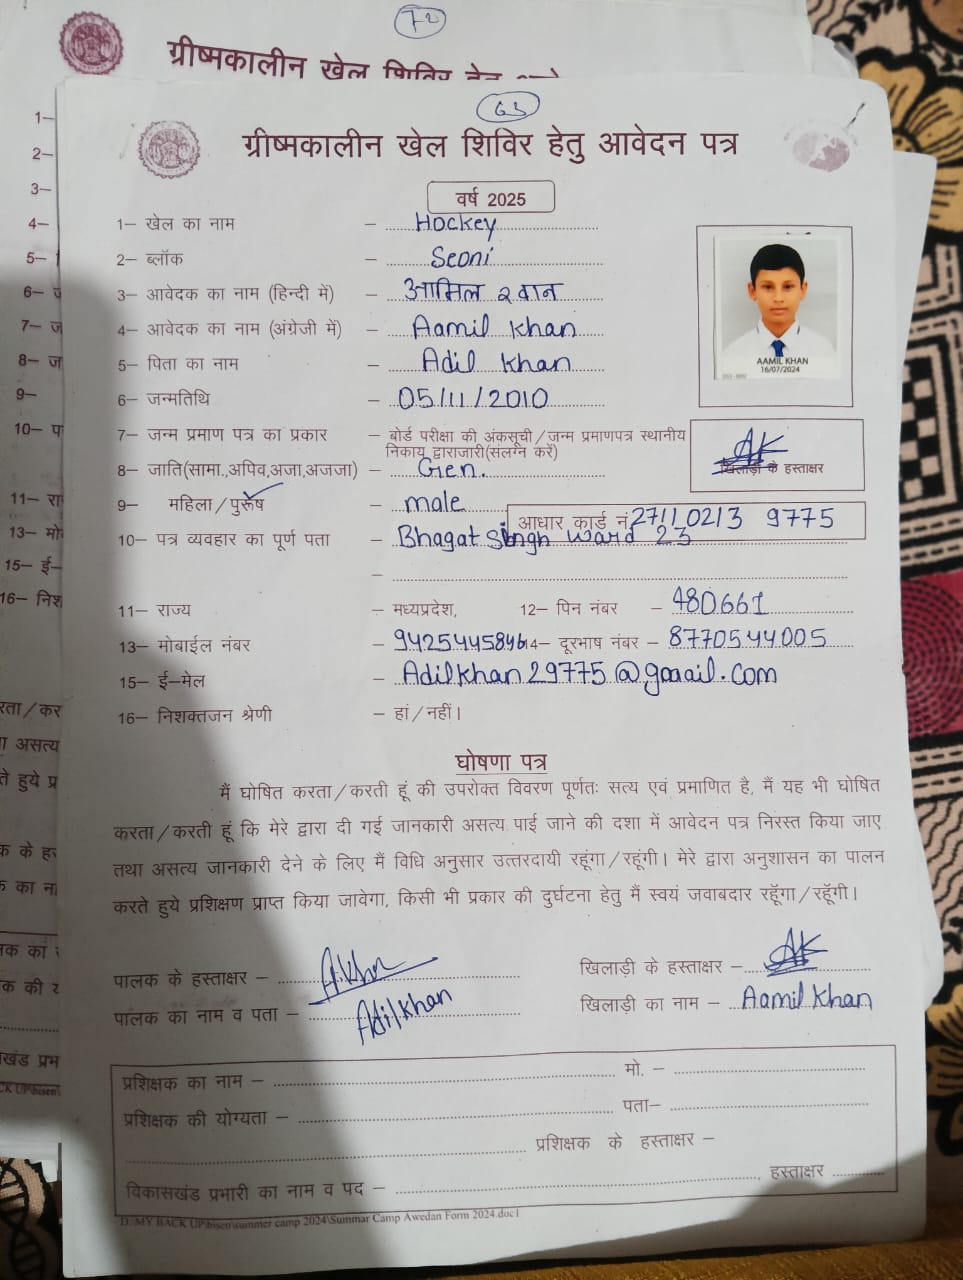 72
ग्रीष्मकालीन खेल शिविर हेतु
63
ग्रीष्मकालीन खेल शिविर हेतु आवेदन पत्र
वर्ष 2025
1– खेल का नाम – Hockey
2– ब्लॉक – Seoni
3– आवेदक का नाम (हिन्दी में) – आमिल खान
4– आवेदक का नाम (अंग्रेजी में) – Aamil Khan
5– पिता का नाम – Adil Khan
AAMIL KHAN
16/07/2024
6– जन्मतिथि – 05/11/2010
7– जन्म प्रमाण पत्र का प्रकार – बोर्ड परीक्षा की अंकसूची/जन्म प्रमाणपत्र स्थानीय
निकाय द्वाराजारी(संलग्न करें)
8– जाति(सामा.,अपिव,अजा,अजजा) – Gen.
AK
खिलाड़ी के हस्ताक्षर
9– महिला/पुरूष – male
आधार कार्ड नं 2711 0213 9775
10– पत्र व्यवहार का पूर्ण पता – Bhagat Singh Ward 23
–
11– राज्य – मध्यप्रदेश, 12– पिन नंबर – 480661
13– मोबाईल नंबर – 9425445846 14– दूरभाष नंबर – 8770544005
15– ई–मेल – Adilkhan29775@gmail.com
16– निशक्तजन श्रेणी – हां/नहीं।
घोषणा पत्र
मैं घोषित करता/करती हूं की उपरोक्त विवरण पूर्णतः सत्य एवं प्रमाणित है, मैं यह भी घोषित
करता/करती हूं कि मेरे द्वारा दी गई जानकारी असत्य पाई जाने की दशा में आवेदन पत्र निरस्त किया जाए
तथा असत्य जानकारी देने के लिए मैं विधि अनुसार उत्तरदायी रहूंगा/रहूंगी। मेरे द्वारा अनुशासन का पालन
करते हुये प्रशिक्षण प्राप्त किया जावेगा, किसी भी प्रकार की दुर्घटना हेतु मैं स्वयं जवाबदार रहूँगा/रहूँगी।
पालक के हस्ताक्षर – A.khan
खिलाड़ी के हस्ताक्षर – AK
पालक का नाम व पता – Adil khan
खिलाड़ी का नाम – Aamil Khan
प्रशिक्षक का नाम – मो. –
प्रशिक्षक की योग्यता – पता–
प्रशिक्षक के हस्ताक्षर –
विकासखंड प्रभारी का नाम व पद – , हस्ताक्षर
D:\MY BACK UP\bisen\summer camp 2024\Summar Camp Awedan Form 2024.doc1